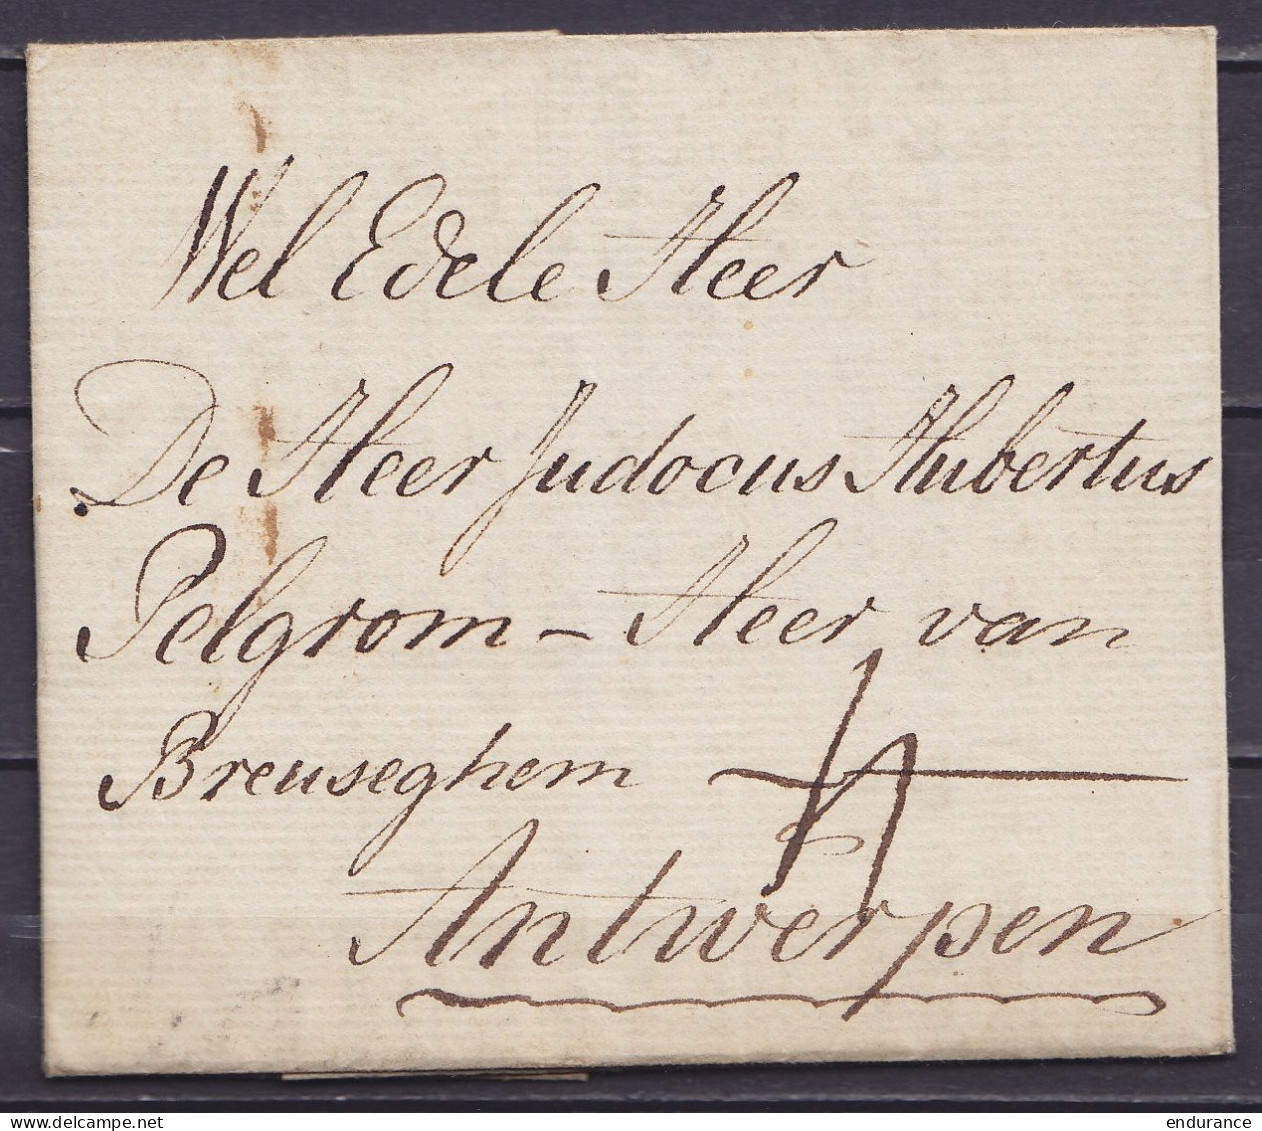 Wel Edele Heer
De Heer Judocus Hubertus
Pelgrom – Heer van
Breuseghem
4
Antwerpen
www.delcampe.net
endurance